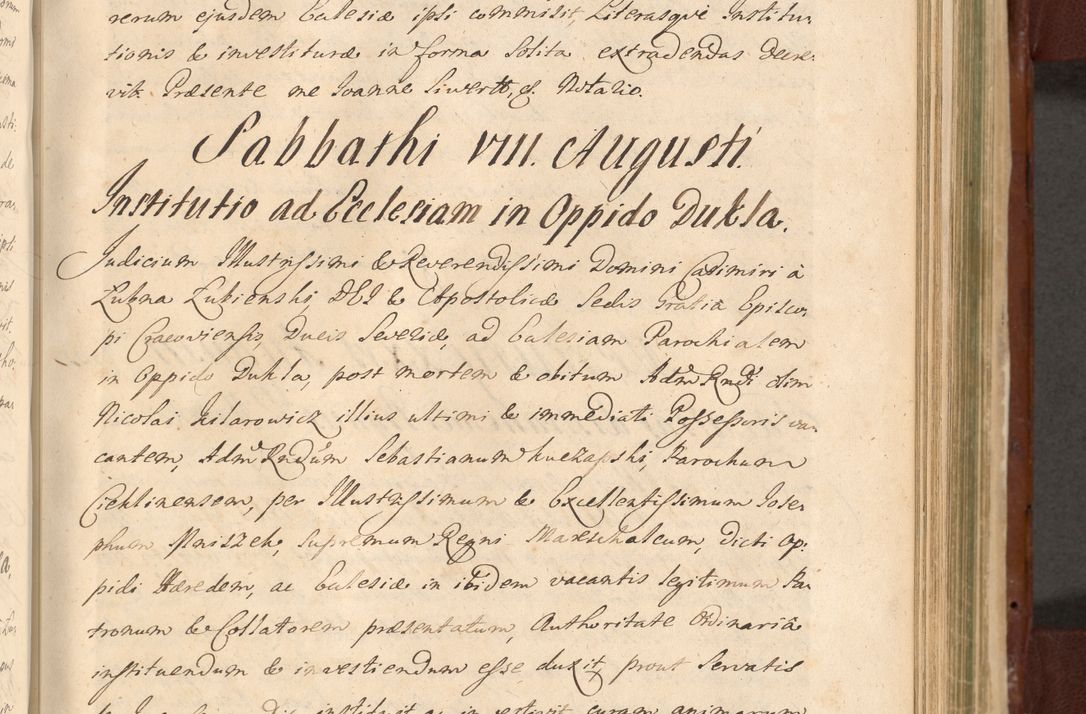 rerum ejusdem Ecclesiæ ipsi commisit, Literasqve Institu-
tionis & investituræ in forma Solita extradendas decre-
vit. Præsente me Joanne Siwertt, Notario.
Sabbathi VIII. Augusti.
Institutio ad Ecclesiam in Oppido Dukla.
Judicium Illustrissimi & Reverendissimi Domini Casimiri à
Łubna Łubienski, DEI & Apostolicæ Sedis Gratia Episco-
pi Cracoviensis, Ducis Severiæ, ad Ecclesiam Parochialem
in Oppido Dukla, post mortem & obitum Adm Rndi olim
Nicolai illius ultimi & immediati Possessoris va-
cantem, Adm Rndum Sebastianum Parochum
Cieklinensem, per Illustrissimum & Excellentissimum Jose-
phum Mniszek, Supremum Regni Marschalcum, dicti Op-
pidi Hæredem, ac Ecclesiæ in ibidem vacantis legitimum Pa-
tronum & Collatorem præsentatum, Authoritate Ordinaria
instituendum & investiendum esse duxit, prout Servatis
instituit ac investivit, curam animarum